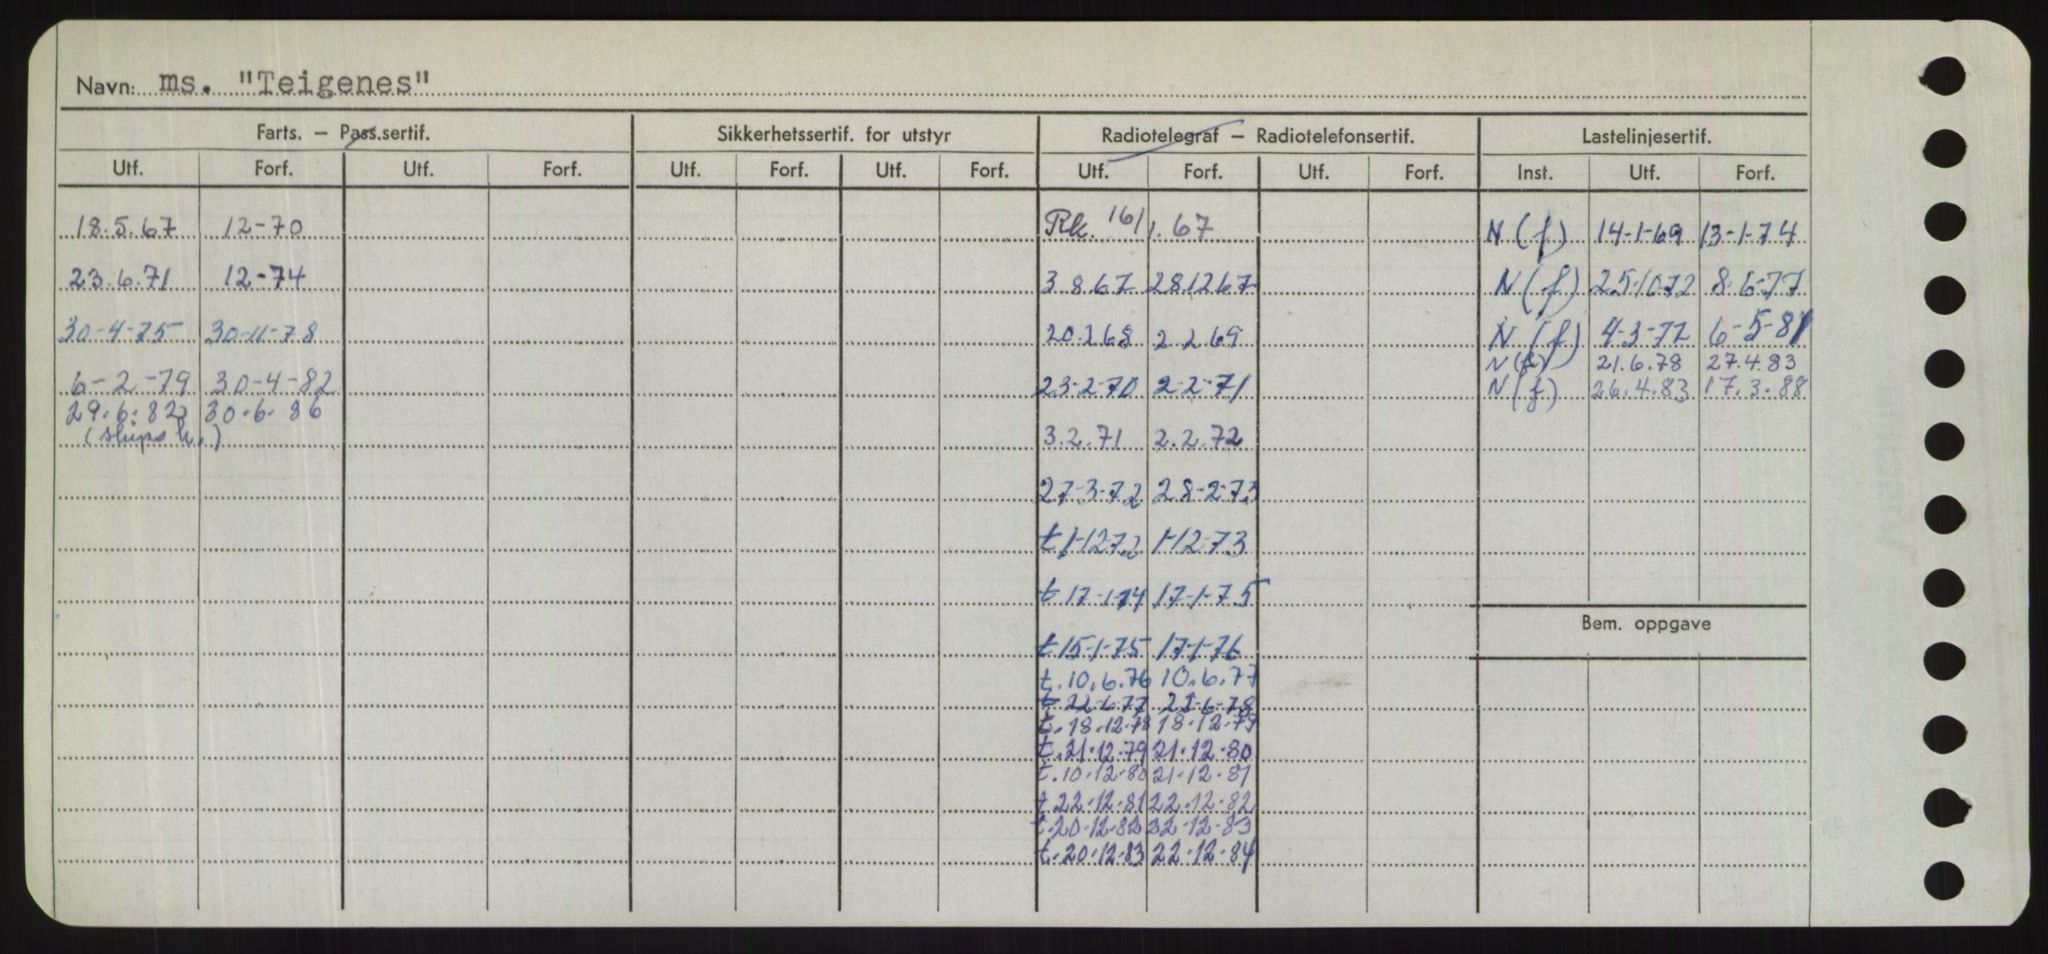 Navn: ms. "Teigenes"
Farts. – Pass.sertif. Sikkerhetssertif. for utstyr Radiotelegraf – Radiotelefonsertif. Lastelinjesertif.
Utf. Forf. Utf. Forf. Utf. Forf. Utf. Forf. Utf. Forf. Utf. Forf. Inst. Utf. Forf.
18.5.67 12-70 Rk. 16/1.67 N (f) 14-1-69 13-1-74
23.6.71 12-74 3 8 67 28 12 67 N (f) 25-10-72 8-6-77
30-4-75 30-11-78 20.2 68 2 2 69 N (f) 4-3-77 6-5-81
N (f) 21.6.78 27.4.83
6-2-79 30-4-82 23-2-70 2-2-71 N (f) 26.4.83 17.3.88
29.6.82 30.6.86
(skips k.) 3.2.71 2.2.72
27-3-72 28-2-73
t 1-12-72 1-12-73
t 17-1-74 17-1-75
Bem. oppgave
t 15-1-75 17-1-76
t. 10.6.76 10.6.77
t 22-6-77 22-6-78
t. 18.12.78 18.12.79
t. 21.12.79 21.12.80
t. 10.12.80 21.12.81
t. 22.12.81 22.12.82
t. 20.12.82 22.12.83
t. 20.12.83 22.12.84